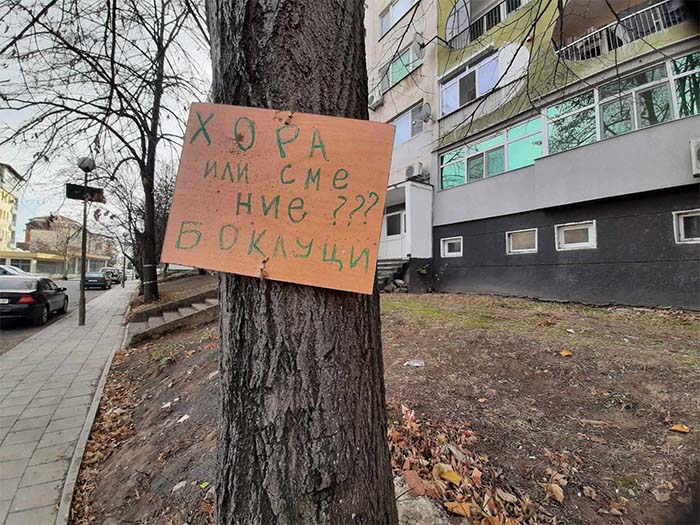 ХОРА
или сме
ние ???
БОКЛУЦИ